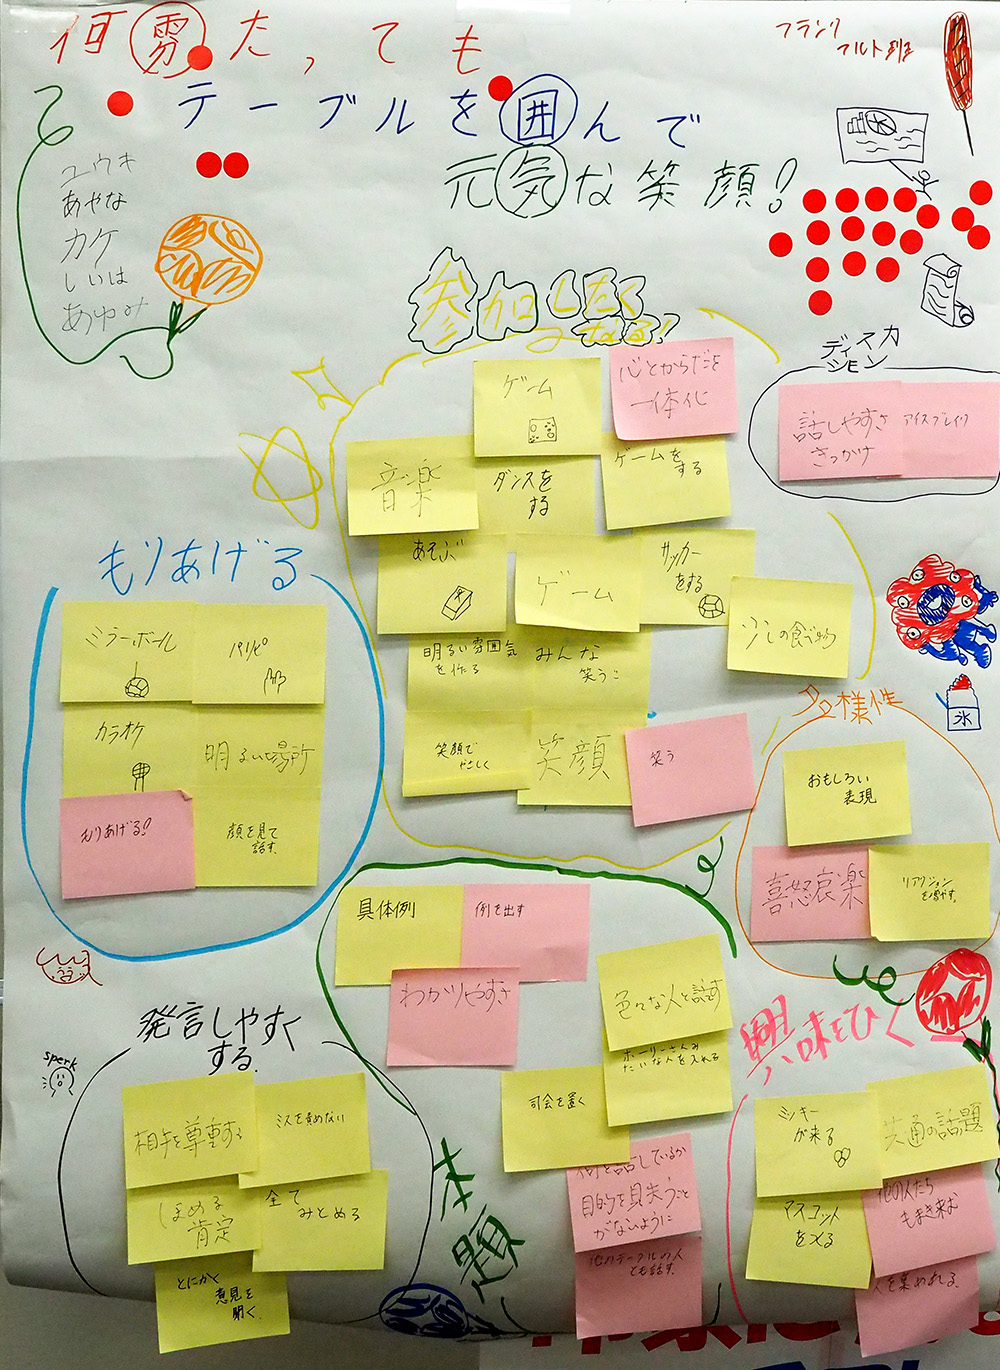 何雰たっても
テーブルを囲んで
元気な笑顔!
フランク
フルト班
ユウキ
あやな
カケ
しいは
あゆみ
参加したく
なる!
ゲーム
心とからだを
一体化
音楽
ダンスを
する
ゲームを
する
あそぶ
ゲーム
サッカー
をする
明るい雰囲気
を作る
みんな
笑うこ
笑顔で
やさしく
笑顔
笑う
ディスカ
ション
話しやすさ
きっかけ
アイスブレイク
もりあげる
ミラーボール
パリピ
カラオケ
明るい場所
もりあげる!!
顔を見て
話す。
氷
多様性
おもしろい
表現
喜怒哀楽
リアクション
を増やす。
具体例
例を出す
わかりやすさ
色々な人と話す
ホーリーさんみ
たいな人を入れる
司会を置く
何を話しているか
目的を見失うこと
がないように
他のテーブルの人
とも話す。
本題
発言しやすく
する。
sperk
相手を尊重する
ミスを責めない
ほめる
肯定
全て
みとめる
とにかく
意見を
聞く。
興味をひく
ミッキー
が来る
共通の話題
マスコット
をつくる
他の人たち
もまき来む
人を集めれる。